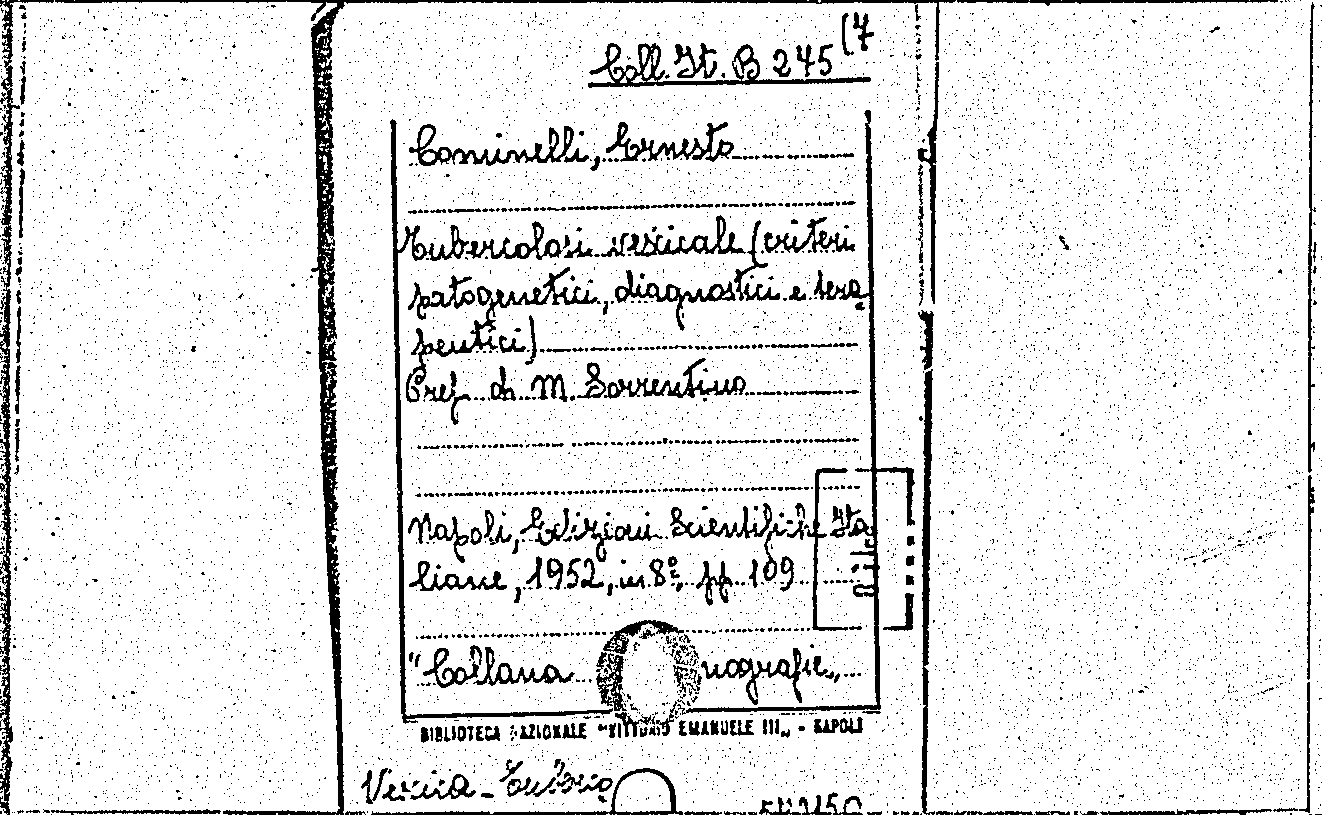 Coll. It. B 245 (7
Cominelli, Ernesto
Tubercolosi vescicale (criteri
patogenetici, diagnostici e tera
peutici)
Pref. di M. Sorrentino
Napoli, Edizioni Scientifiche Ita
liane, 1952, in 8°, pp. 109
"Collana nografie„
BIBLIOTECA NAZIONALE "VITTORIO EMANUELE III„ - NAPOLI
Vescica -